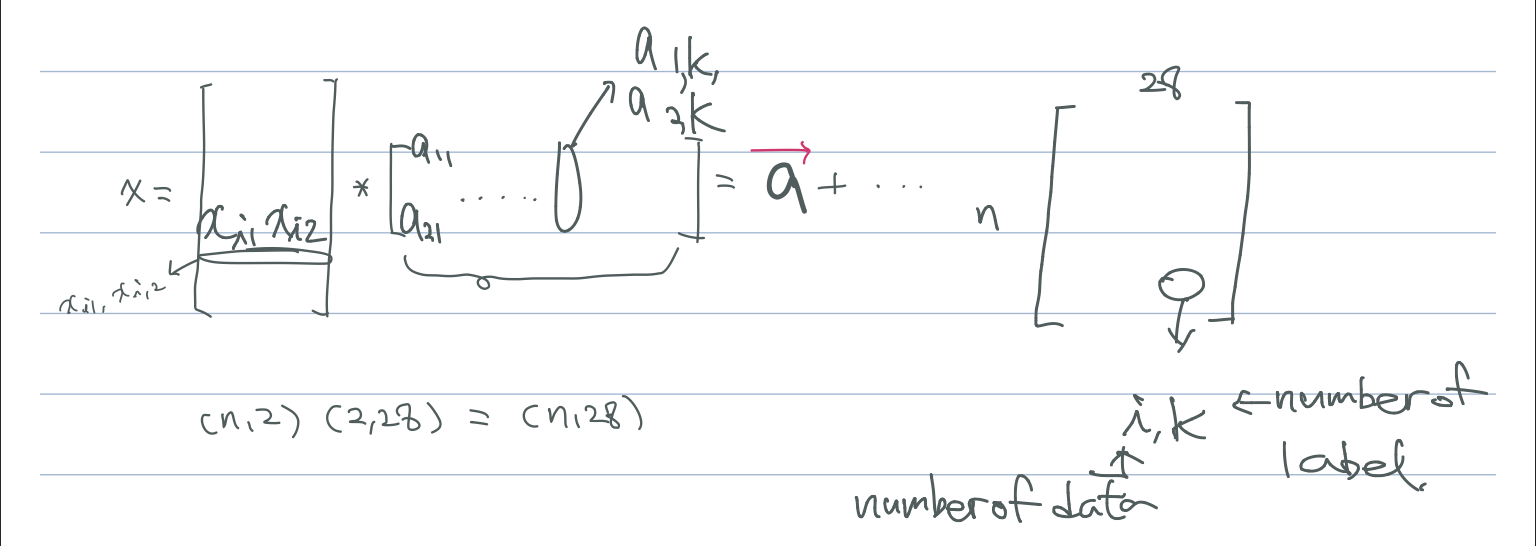 a 1,k,
a 2,k
28
x = [ xi1 xi2 ] * [ a11 ..... ] = a⃗ + ...
a21
n
xi1, xi,2
(n,2) (2,28) = (n,28)
i,k ← number of
label.
number of data